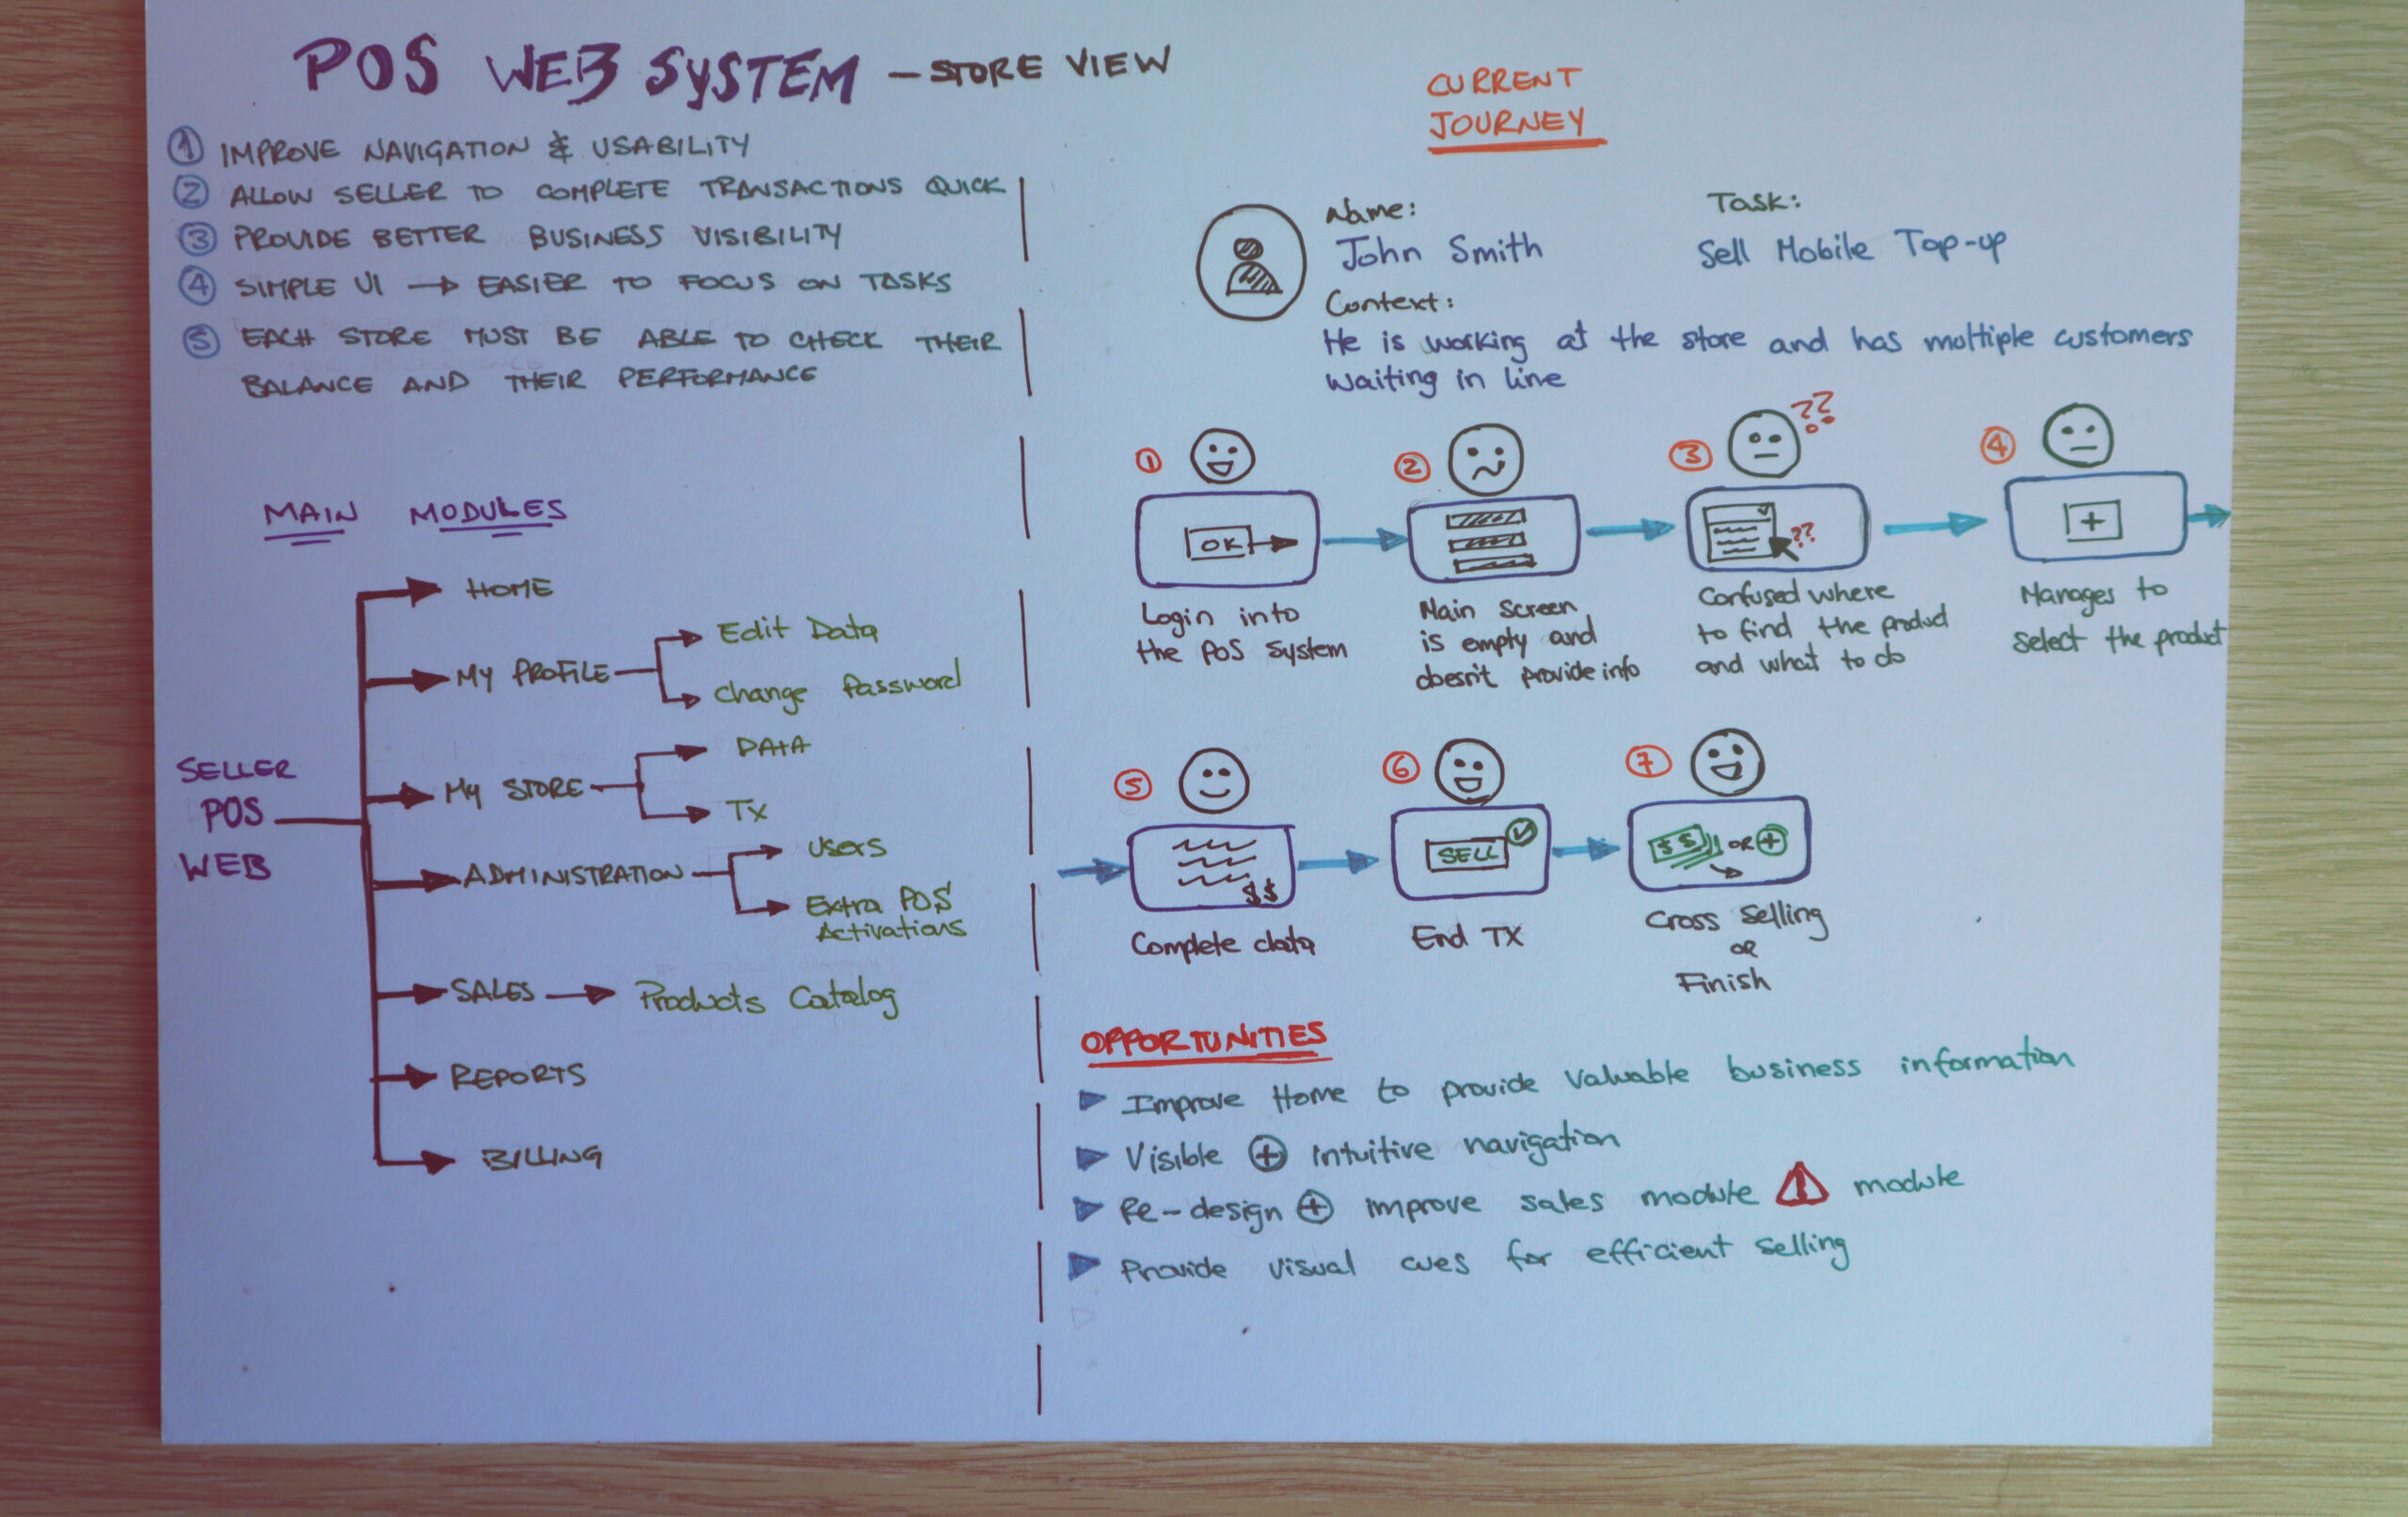 POS WEB SYSTEM – STORE VIEW
① IMPROVE NAVIGATION & USABILITY
② ALLOW SELLER TO COMPLETE TRANSACTIONS QUICK
③ PROVIDE BETTER BUSINESS VISIBILITY
④ SIMPLE UI → EASIER TO FOCUS ON TASKS
⑤ EACH STORE MUST BE ABLE TO CHECK THEIR
BALANCE AND THEIR PERFORMANCE
MAIN MODULES
SELLER
POS
WEB
HOME
MY PROFILE
Edit Data
Change Password
MY STORE
DATA
TX
ADMINISTRATION
Users
Extra POS
Activations
SALES → Products Catalog
REPORTS
BILLING
CURRENT
JOURNEY
Name:
John Smith
Task:
Sell Mobile Top-up
Context:
He is working at the store and has multiple customers
waiting in line
①
OK
Login into
the POS System
②
Main Screen
is empty and
doesn't provide info
③
??
??
Confused where
to find the product
and what to do
④
+
Manages to
select the product
⑤
$$
Complete data
⑥
SELL
End TX
⑦
$$ OR +
Cross Selling
or
Finish
OPPORTUNITIES
Improve Home to provide valuable business information
Visible + intuitive navigation
Re-design + improve sales module ! module
Provide visual cues for efficient selling